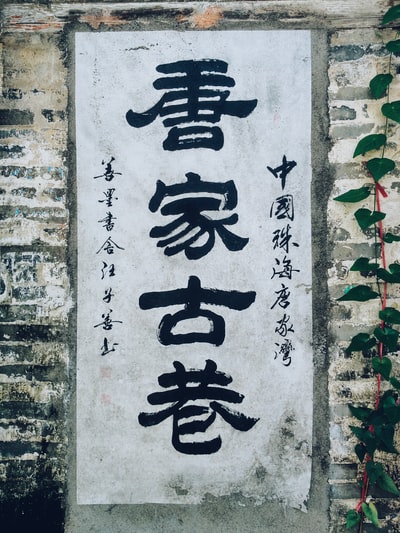 中國珠海唐家灣
唐家古巷
善墨書舍汪子善书